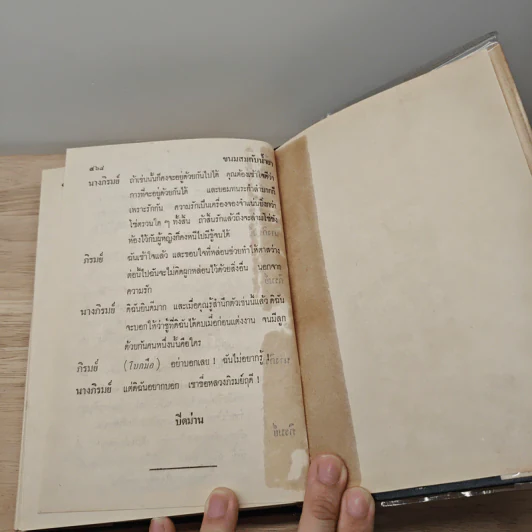 ๔๖๘
ขนมสมกับน้ำยา
นางภิรมย์ ถ้าเช่นนั้นก็คงจะอยู่ด้วยกันไปได้ คุณต้องเข้าใจดีว่า
การที่จะอยู่ด้วยกันได้ และยอมทนระกำลำบากก็
เพราะรักกัน ความรักเป็นเครื่องจองจำแน่นยิ่งกว่า
โซ่ตรวนใด ๆ ทั้งสิ้น ถ้าสิ้นรักแล้วถึงจะล่ามโซ่ขัง
ห้องไว้กับผู้หญิงก็คงหนีไปมีชู้จนได้
ภิรมย์ ฉันเข้าใจแล้ว และขอบใจที่หล่อนช่วยทำให้ตาสว่าง
ต่อนี้ไปฉันจะไม่คิดผูกหล่อนไว้ด้วยสิ่งอื่น นอกจาก
ความรัก
นางภิรมย์ ดิฉันยินดีมาก และเมื่อคุณรู้สำนึกตัวเช่นนี้แล้ว ดิฉัน
จะบอกให้ว่าชู้ที่ดิฉันได้คบเมื่อก่อนแต่งงาน จนมีลูก
ด้วยกันคนหนึ่งนั้นคือใคร
ภิรมย์ (โบกมือ) อย่าบอกเลย ! ฉันไม่อยากรู้ !
นางภิรมย์ แต่ดิฉันอยากบอก เขาชื่อหลวงภิรมย์ฤดี !
ปิดม่าน